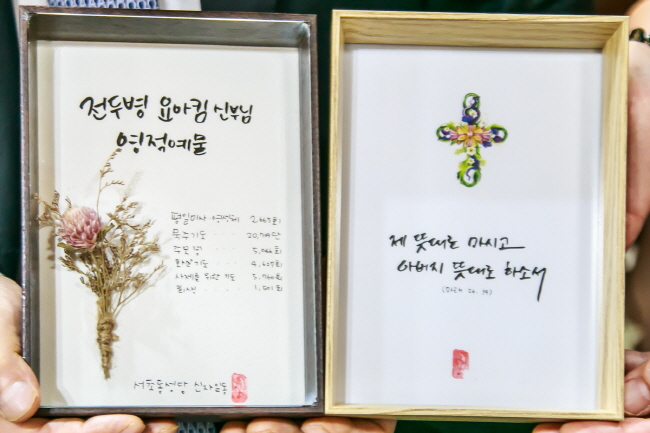 전두병 요아킴 신부님
영적예물
평일미사 영성체 2,467회
묵주기도 20,799단
주모경 5,066회
화살기도 4,605회
사제를 위한 기도 5,740회
희생 1,501회
서초동성당 신자일동
제 뜻대로 마시고
아버지 뜻대로 하소서
(마태 26. 39)